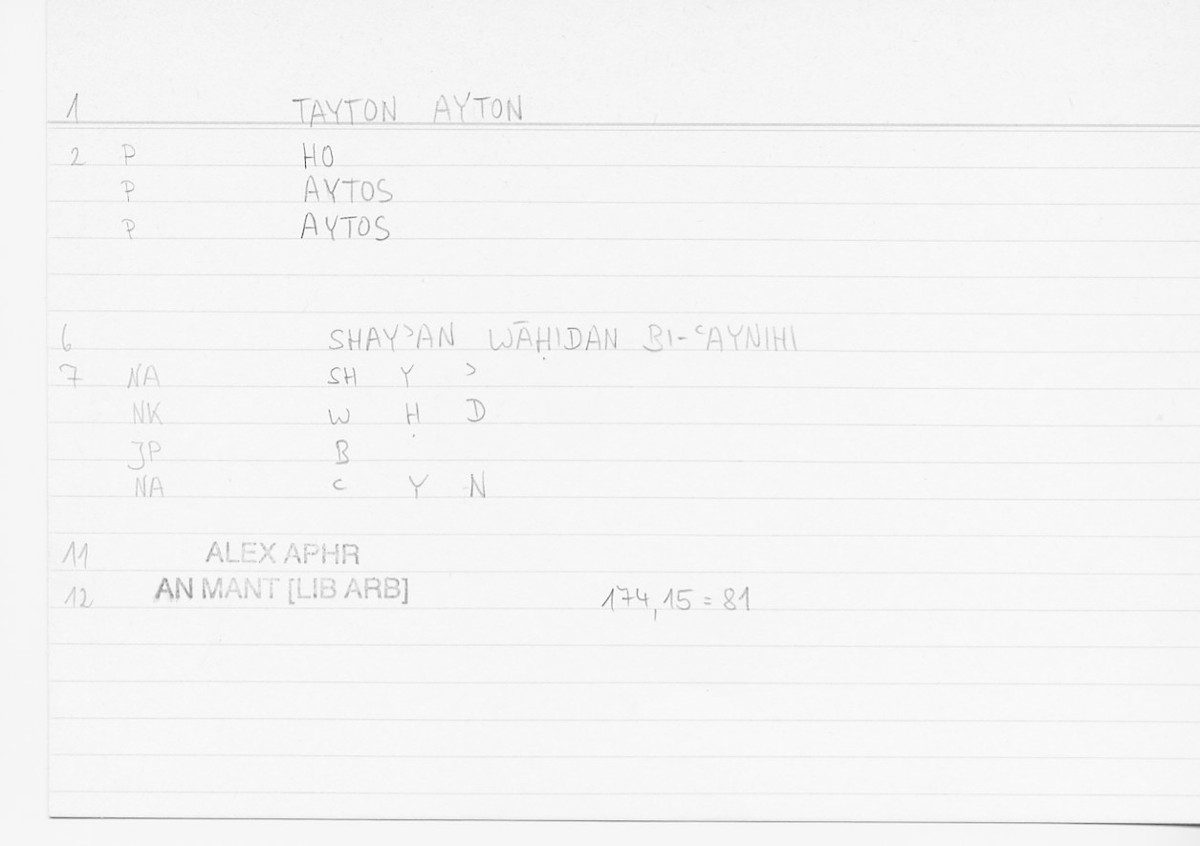 1 TAYTON AYTON
2 P HO
P AYTOS
P AYTOS
6 SHAYʾAN WĀḤIDAN BI-ʿAYNIHI
7 NA SH Y ʾ
NK W Ḥ D
JP B
NA ʿ Y N
11 ALEX APHR
12 AN MANT [LIB ARB] 174,15 = 81